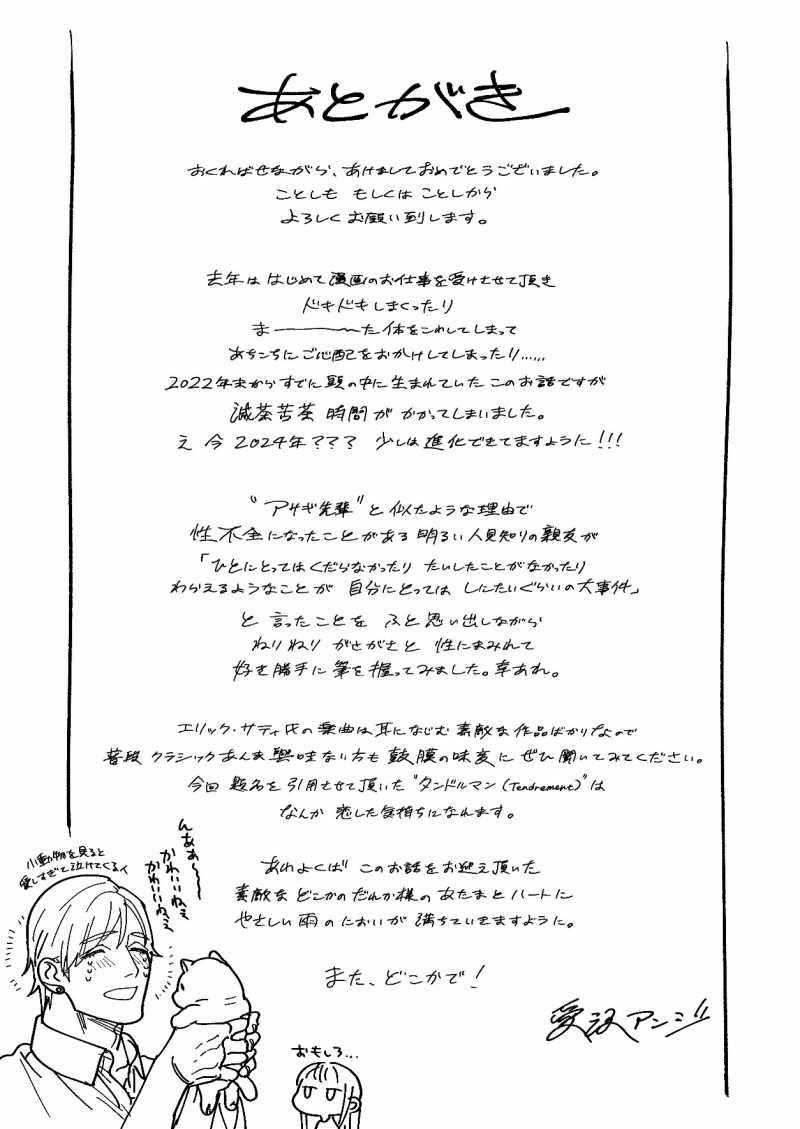 あとがき
おくればせながら、あけましておめでとうございました。
ことしも もしくは ことしから
よろしく お願い到します。
去年は はじめて 漫画のお仕事を受けさせて頂き
ドキドキしまくったり
ま―――〜た体をこわしてしまって
あちこちに ご心配をおかけしてしまったり……
2022年末からすでに頭の中に生まれていた このお話ですが
滅茶苦茶 時間が かかってしまいました。
え 今 2024年??? 少しは 進化できてますように!!!
"アサギ先輩"と似たような理由で
性不全になったことがある 明るい 人見知りの親友が
「ひとにとってはくだらなかったり たいしたことがなかったり
わらえるようなことが 自分にとっては しにたいぐらいの大事件」
と 言ったことを ふと思い出しながら
ねりねり がさがさと 性にまみれて
好き勝手に筆を握ってみました。幸あれ。
エリック・サティ氏の楽曲は耳になじむ 素敵な作品ばかりなので
普段 クラシックあんま興味ない方も 鼓膜の味変に ぜひ聞いてみてください。
今回 題名を引用させて頂いた"タンドルマン(Tendrement)"は
なんか 恋した気持ちになれます。
あわよくば このお話をお迎え頂いた
素敵な どこかのだれか様の あたまとハートに
やさしい雨のにおいが 満ちていきますように。
また、どこかで!
愛沢アンジ
小動物を見ると
愛しすぎて泣けてくるイ
んああ〜〜
かわいいねえ
かわいいねえ
おもしろ…